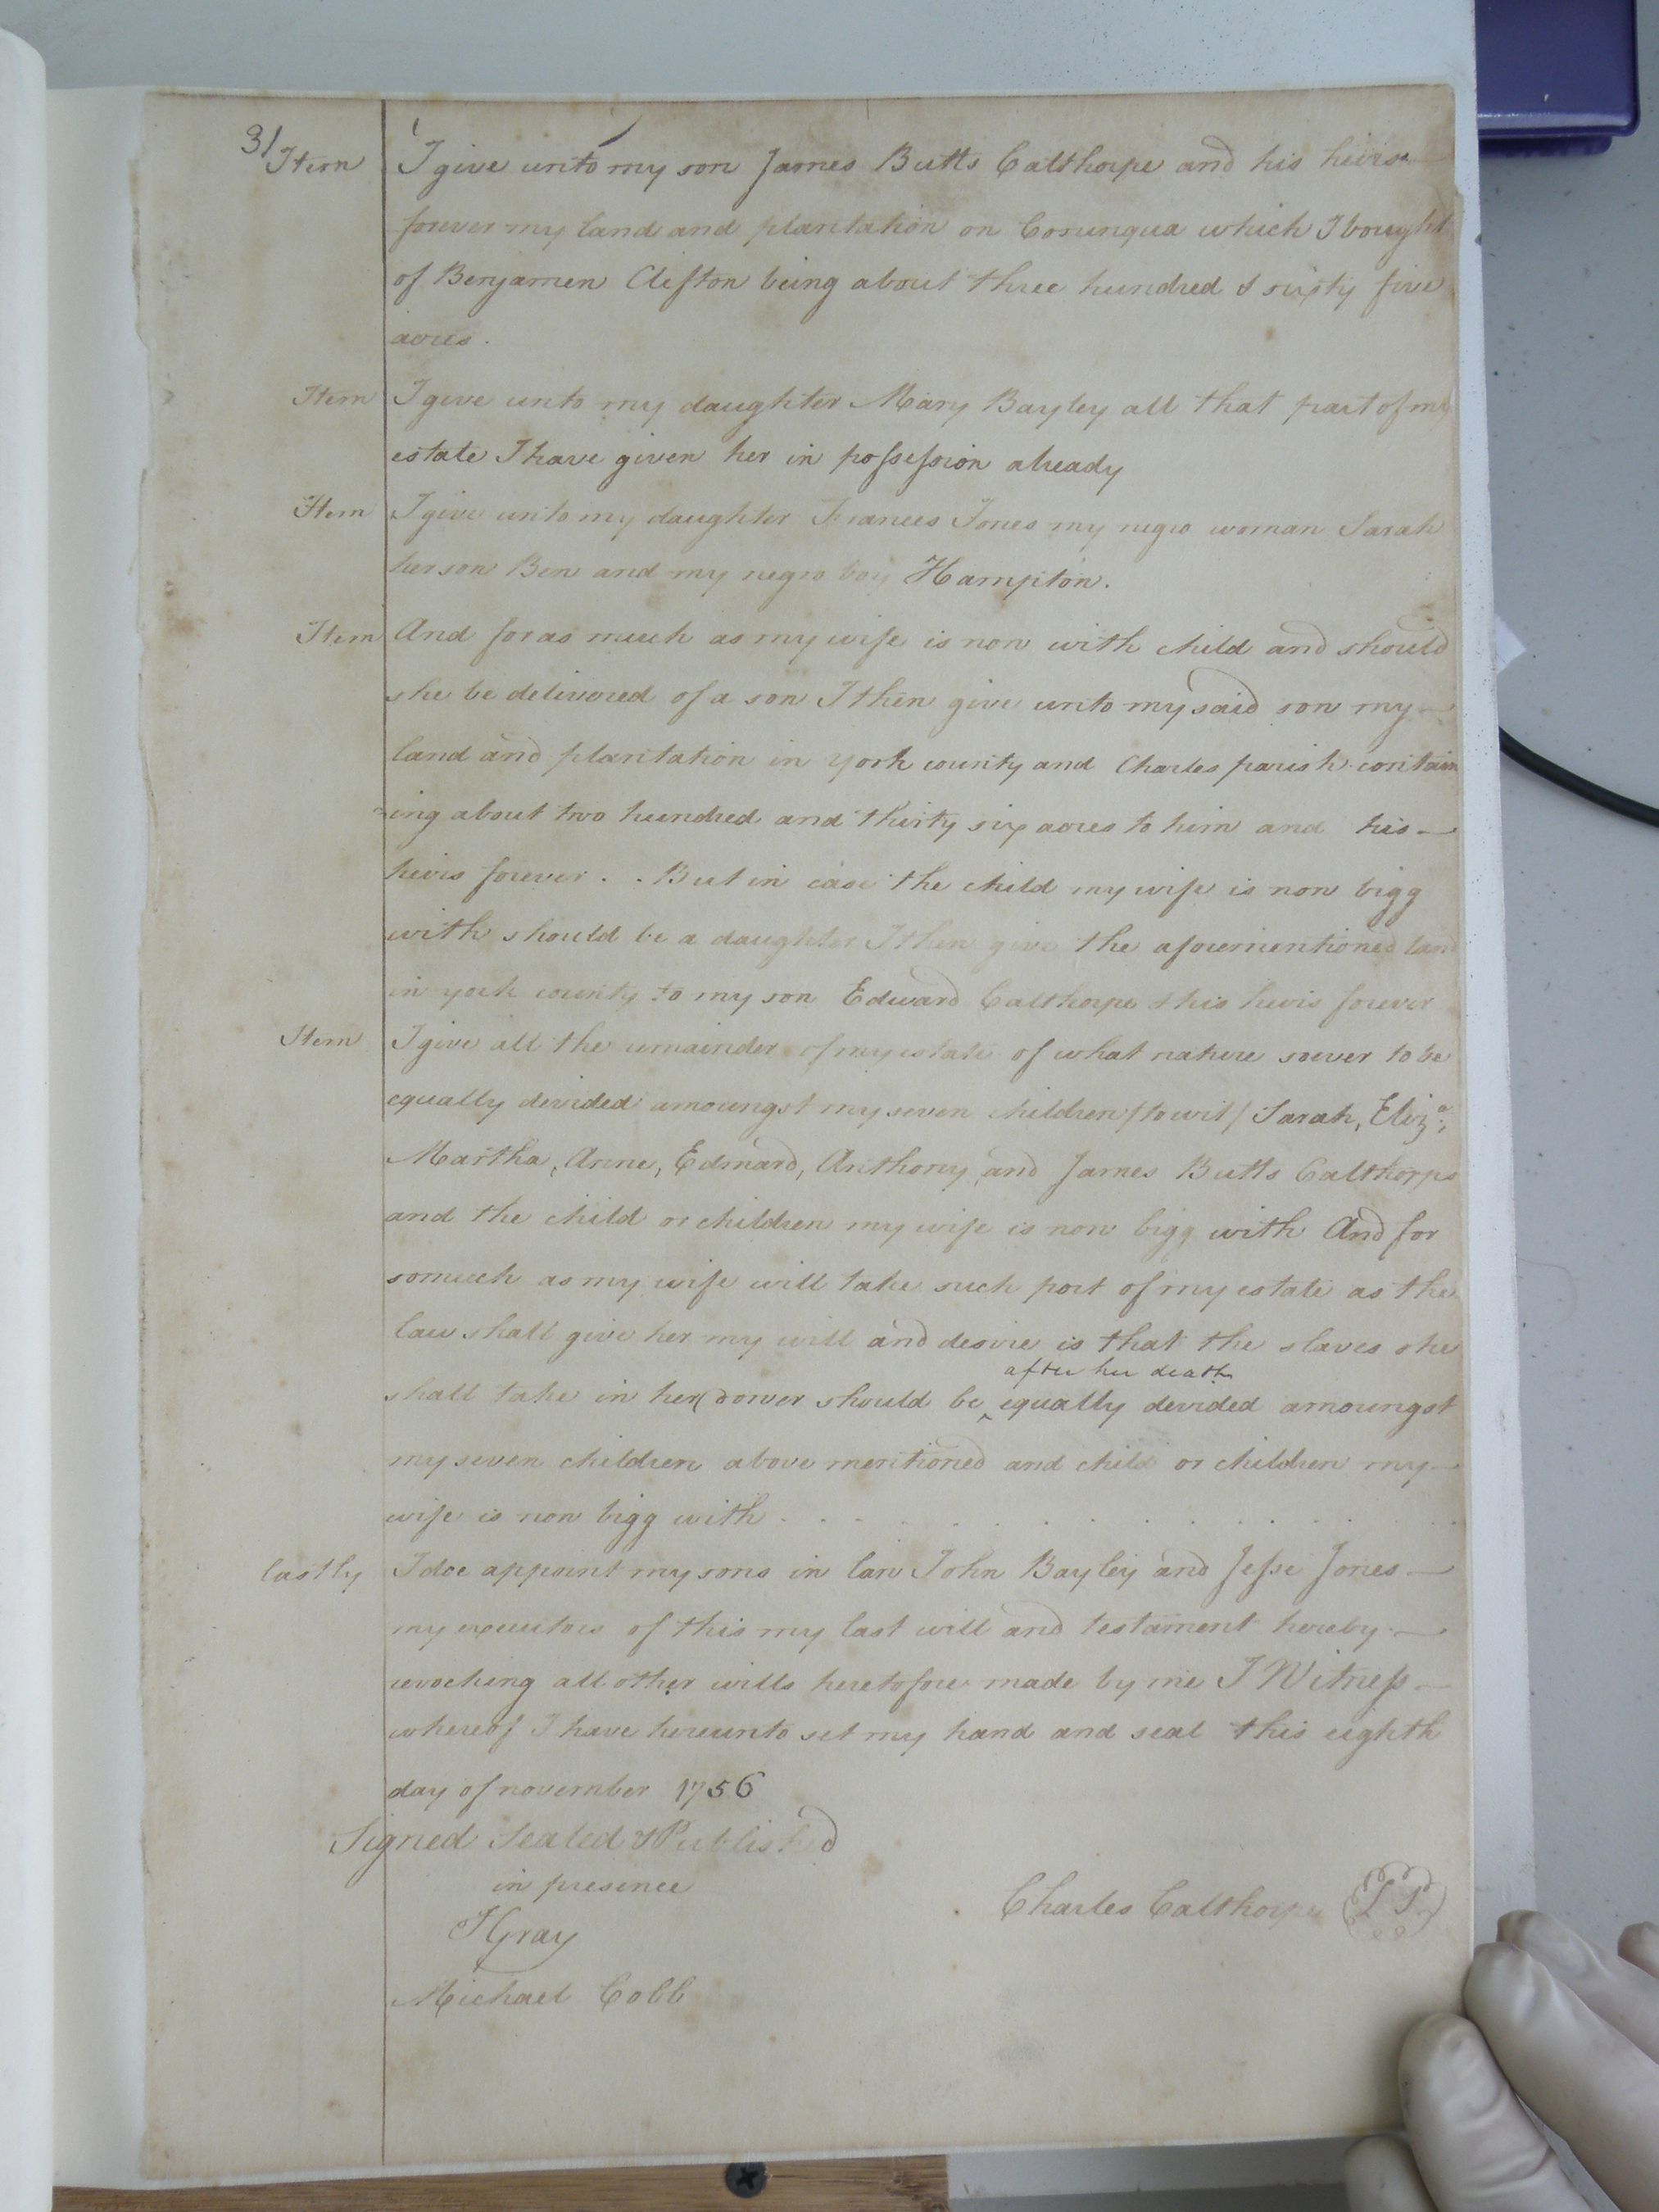 31
Item I give unto my son James Butts Calthorpe and his heirs
forever my land and plantation on Corunqua which I bought
of Benjamen Clifton being about three hundred & sixty five
acres.
Item I give unto my daughter Mary Bayley all that part of my
estate I have given her in possession already
Item I give unto my daughter Frances Jones my negro woman Sarah
her son Ben and my negro boy Hampton.
Item And foras much as my wife is now with child and should
she be delivered of a son I then give unto my said son my
land and plantation in york county and Charles parish contain
ing about two hundred and thirty six acres to him and his
heirs forever . . But in case the child my wife is now bigg
with should be a daughter I then give the aforementioned land
in york county to my son Edward Calthorpe & his heirs forever
Item I give all the remainder of my estate of what nature soever to be
equally devided amoungst my seven children /to wit/ Sarah, Eliza;
Martha, Anne, Edward, Anthony, and James Butts Calthorpe
and the child or children my wife is now bigg with And for
somuch as my wife will take such part of my estate as the
law shall give her my will and desire is that the slaves she
after her death
shall take in her dower should be ^ equally devided amoungst
my seven children above mentioned and child or children my
wife is now bigg with . . . . . . . . . . . . .
lastly I doe appoint my sons in law John Bayley and Jesse Jones
my executors of this my last will and testament hereby
revocking all other wills heretofore made by me I Witness
whereof I have hereunto set my hand and seal this eighth
day of november 1756
Signed Sealed & Published
in presence
Charles Calthorpe (L S)
JGray
Michael Cobb